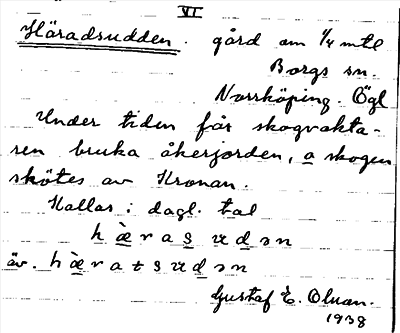 VI
Häradsudden. gård om 1/4 mtl
Borgs sn.
Norrköping. Ögl
Under tiden får skogvakta-
ren bruka åkerjorden, a skogen
skötes av Kronan.
Kallas i dagl. tal
h æ r a s u d ə n
äv. h æ r a t s u d ə n
Gustaf E. Olsson.
1938